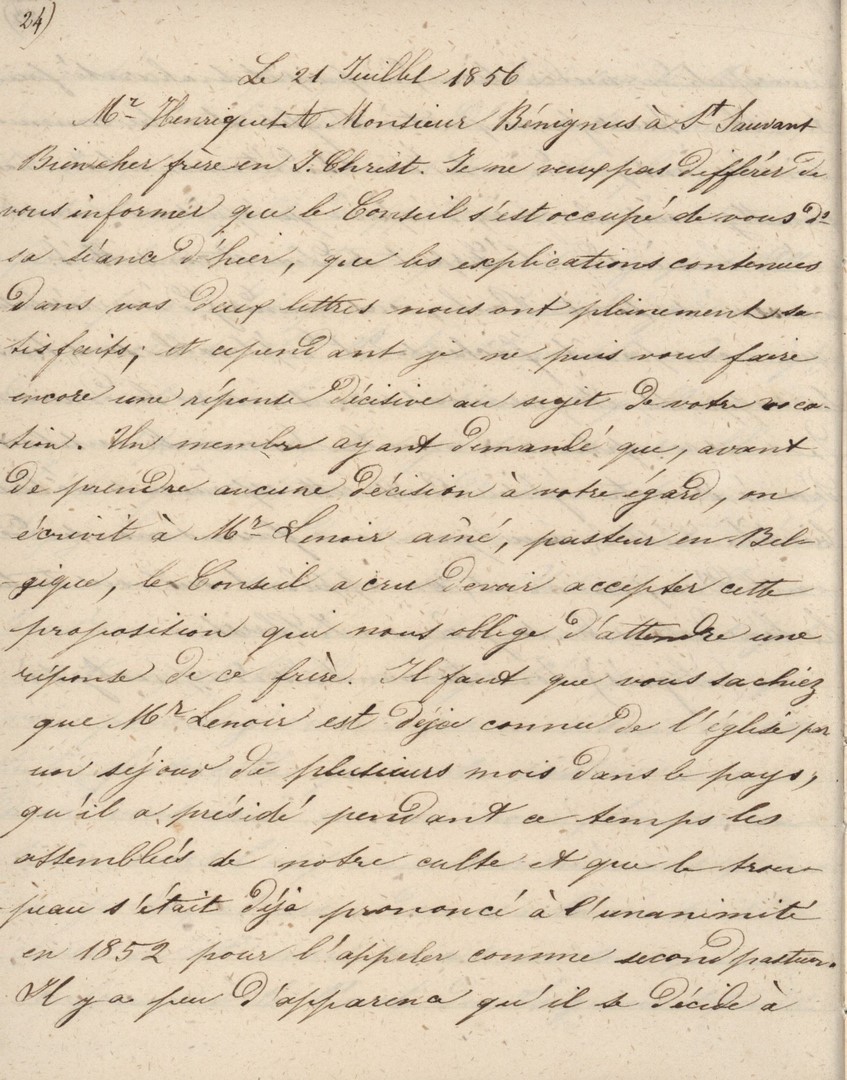 24)
Le 21 Juillet 1856
Mr Henriquet à Monsieur Bénignus à St Sauvant
Bien cher frère en J. Christ. Je ne veux pas différer de
vous informer que le Conseil s'est occupé de vous ds
sa séance d'hier, que les explications contenues
dans vos deux lettres nous ont pleinement sa-
tisfaits; et cependant je ne puis vous faire
encore une réponse décisive au sujet de votre voca-
tion. Un membre ayant demandé que, avant
de prendre aucune décision à votre égard, on
écrivit à Mr Lenoir aîné, pasteur en Bel-
gique, le Conseil a cru devoir accepter cette
proposition qui nous oblige d'attendre une
réponse de ce frère. Il faut que vous sachiez
que Mr Lenoir est déja connu de l'église par
un séjour de plusieurs mois dans le pays,
qu'il a présidé pendant ce temps les
assemblées de notre culte et que le trou-
peau s'était déja prononcé à l'unanimité
en 1852 pour l'appeler comme second pasteur.
Il y a peu d'apparence qu'il se décide à